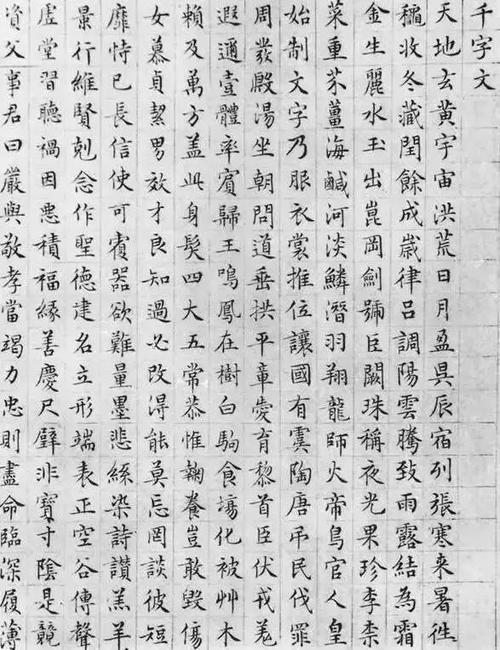 千字文
天地玄黃宇宙洪荒日月盈昃辰宿列張寒来暑往
穐收冬藏閏餘成歲律呂調陽雲騰致雨露結為霜
金生麗水玉出崑岡劍號巨闕珠稱夜光果珍李柰
菜重芥薑海鹹河淡鱗潛羽翔龍師火帝鳥官人皇
始制文字乃服衣裳推位讓國有虞陶唐吊民伐罪
周發殷湯坐朝問道垂拱平章愛育黎首臣伏戎羌
遐邇壹體率賓歸王鳴鳳在樹白駒食場化被艸木
賴及萬方盖此身髮四大五常恭惟鞠養豈敢毀傷
女慕貞潔男效才良知過必改得能莫忘罔談彼短
靡恃己長信使可覆器欲難量墨悲絲染詩讚羔羊
景行維賢剋念作聖德建名立形端表正空谷傳聲
虛堂習聽禍因惡積福緣善慶尺璧非寶寸陰是競
資父事君曰嚴與敬孝當竭力忠則盡命臨深履薄